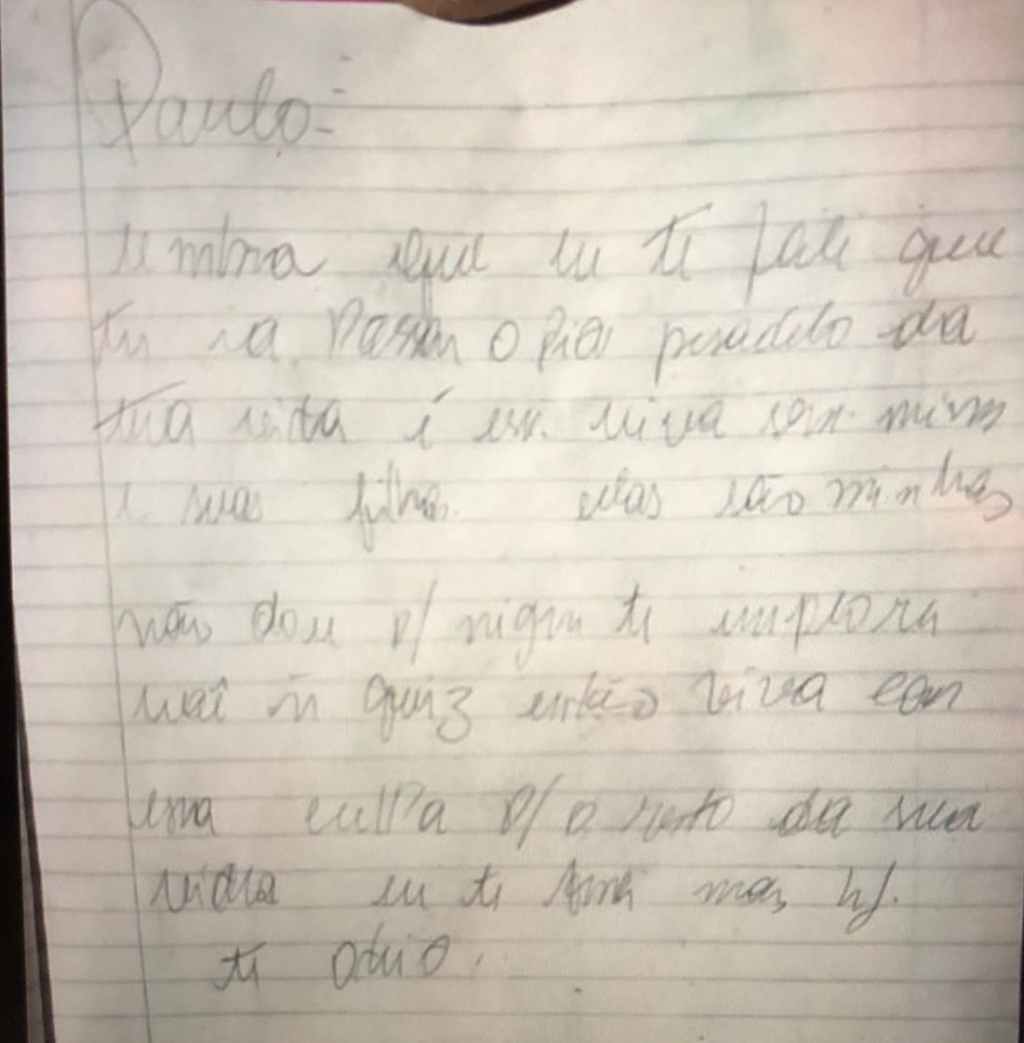 Paulo:
lembra que eu te falei que
tu ia passar o pior pesadelo da
tua vida é esse viva sem mim
e suas filhas elas são minhas
não dou p/ nigem te implorei
vai ñ quiz então viva com
essa culpa p/ o resto da sua
vida eu te amei mas hj.
te odeio.